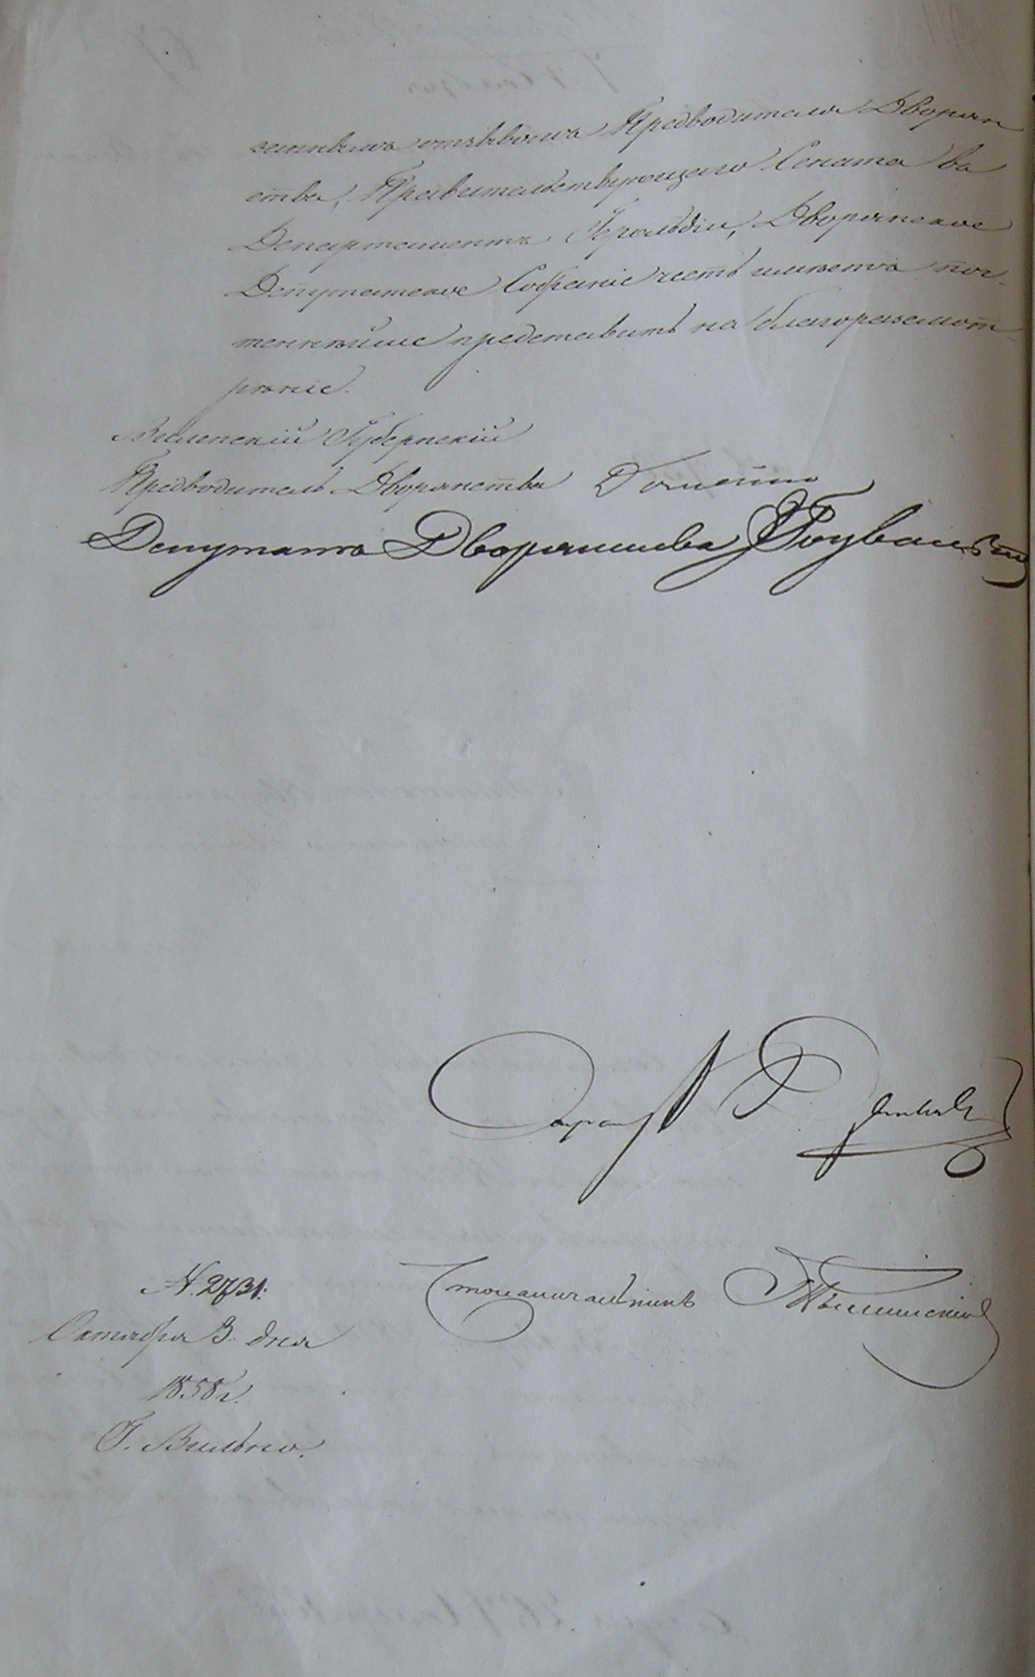 отзывомъ Предводителя Дворян
ства, Правительствующаго Сената въ
Департаментъ Герольдіи, Дворянское
Депутатское Собраніе честь имѣетъ поч
теннѣйше представить на благоразсмот
рѣніе.
Виленскій Губернскій
Предводитель Дворянства Домейко
Депутатъ Дворянства
Секретарь
N. 2731.
Столоначальникъ
Октября 3 дня
1858 г.
Г. Вильно.